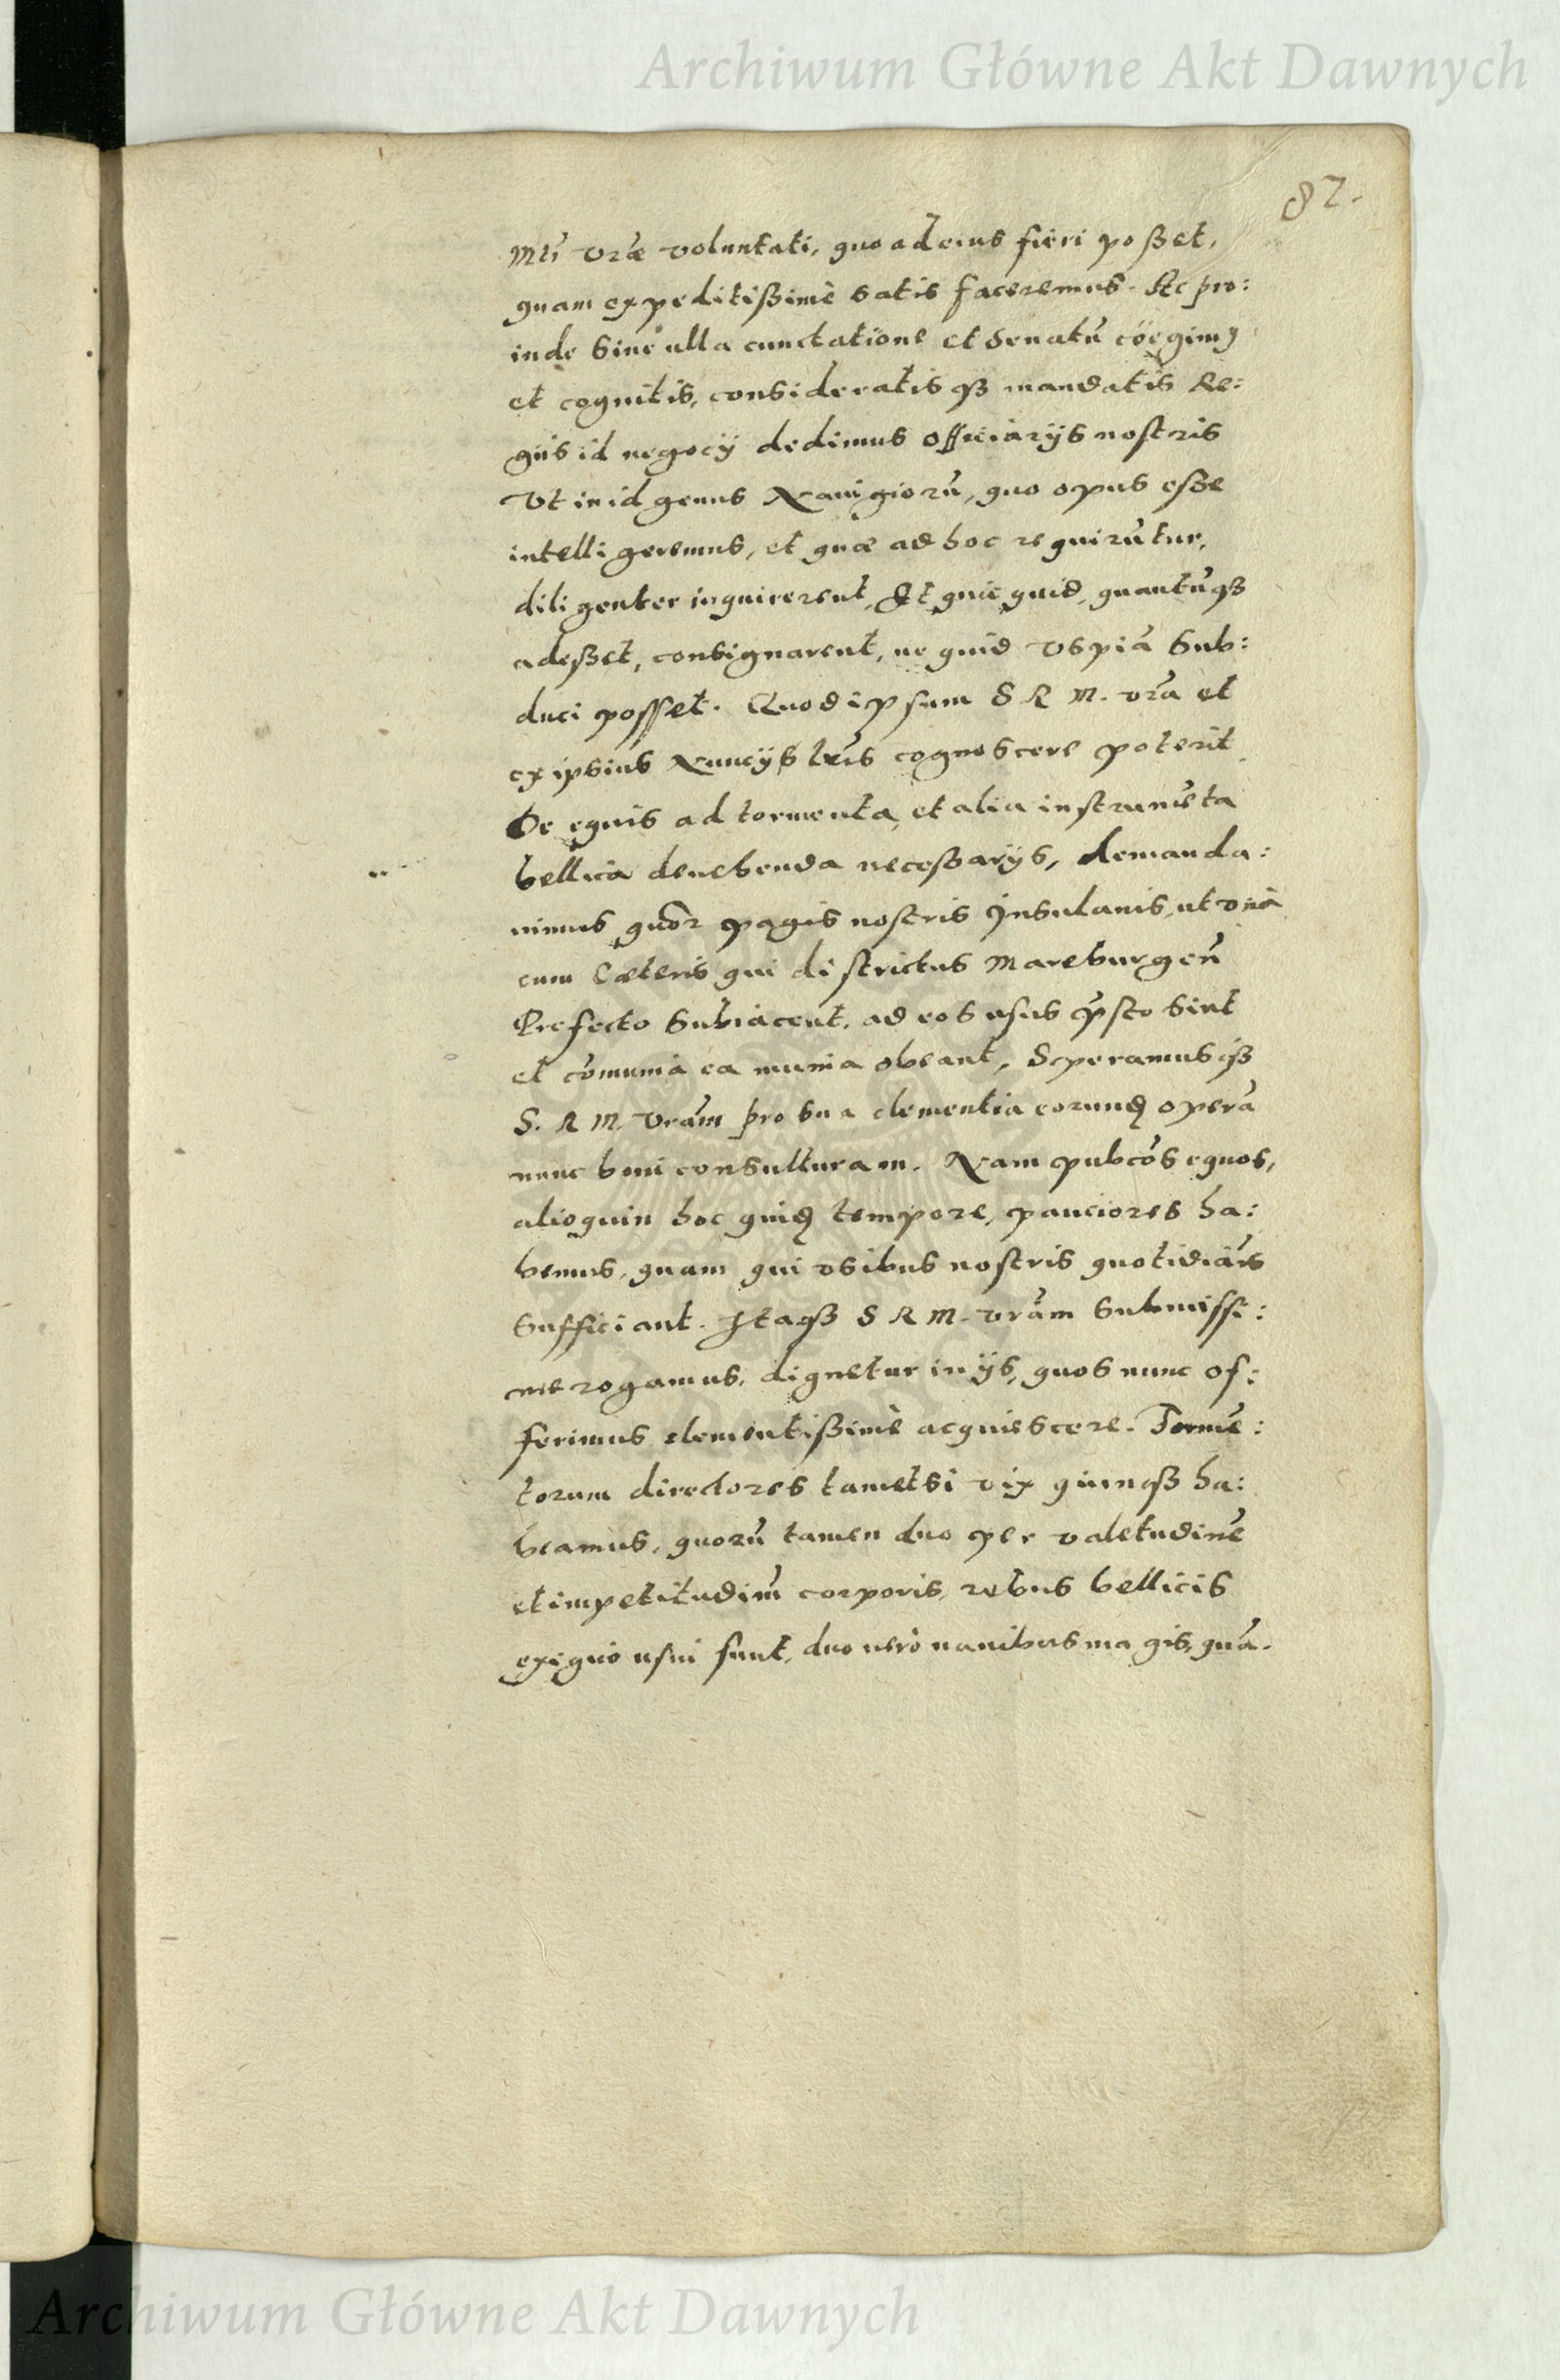 Archiwum Główne Akt Dawnych
82.
Mti vr̃æ voluntati, quoad eius fieri poßet,
quam expeditißimè satis faceremus. Ac pro:
inde sine ulla cunctatione et Senatũ coëgimꝯ
et cognitis, consideratisqꝫ mandatis Re:
gijs id negocij dedimus officiarijs nostris
Vt in id genus Nauigiorũ, quo opus eße
intelligeremus, et quæ ad hoc requirũtur,
diligenter inquirerent, Et quicquid, quantũqꝫ
adeßet, consignarent, ne quid vspiã sub:
duci posset. Quod ipsum S R M. vr̃a et
ex ipsius Nuncijs lr̃is cognoscere poterit.
De equis ad tormenta, et alia instrumẽta
bellica deuehenda neceßarijs, demanda:
uimus quor̃ pagis nostris Insulanis, ut vnà
cum Cæteris qui districtus Mareburgeñ
Præfecto subiacent, ad eos usus p̃sto sint
et cõmunia ea munia obeant, Speramusqꝫ
S. R M. vr̃am pro sua clementia eorundẽ operã
nunc boni consulturam. Nam pubcõs equos,
alioquin hoc quidẽ tempore, pauciores ha:
bemus, quam qui vsibus nostris quotidiañis
sufficiant. Itaqꝫ S R M. vr̃am submissi:
me rogamus, dignetur in ijs, quos nunc of:
ferimus clementißimè acquiescere. Tormẽ:
torum directores tametsi vix quinqꝫ ha:
beamus, quorũ tamen duo per valetudinẽ
et impetitudinẽ corporis, rebus bellicis
exiguo usui sunt, duo uerò nauibus magis, quã.
Archiwum Główne Akt Dawnych